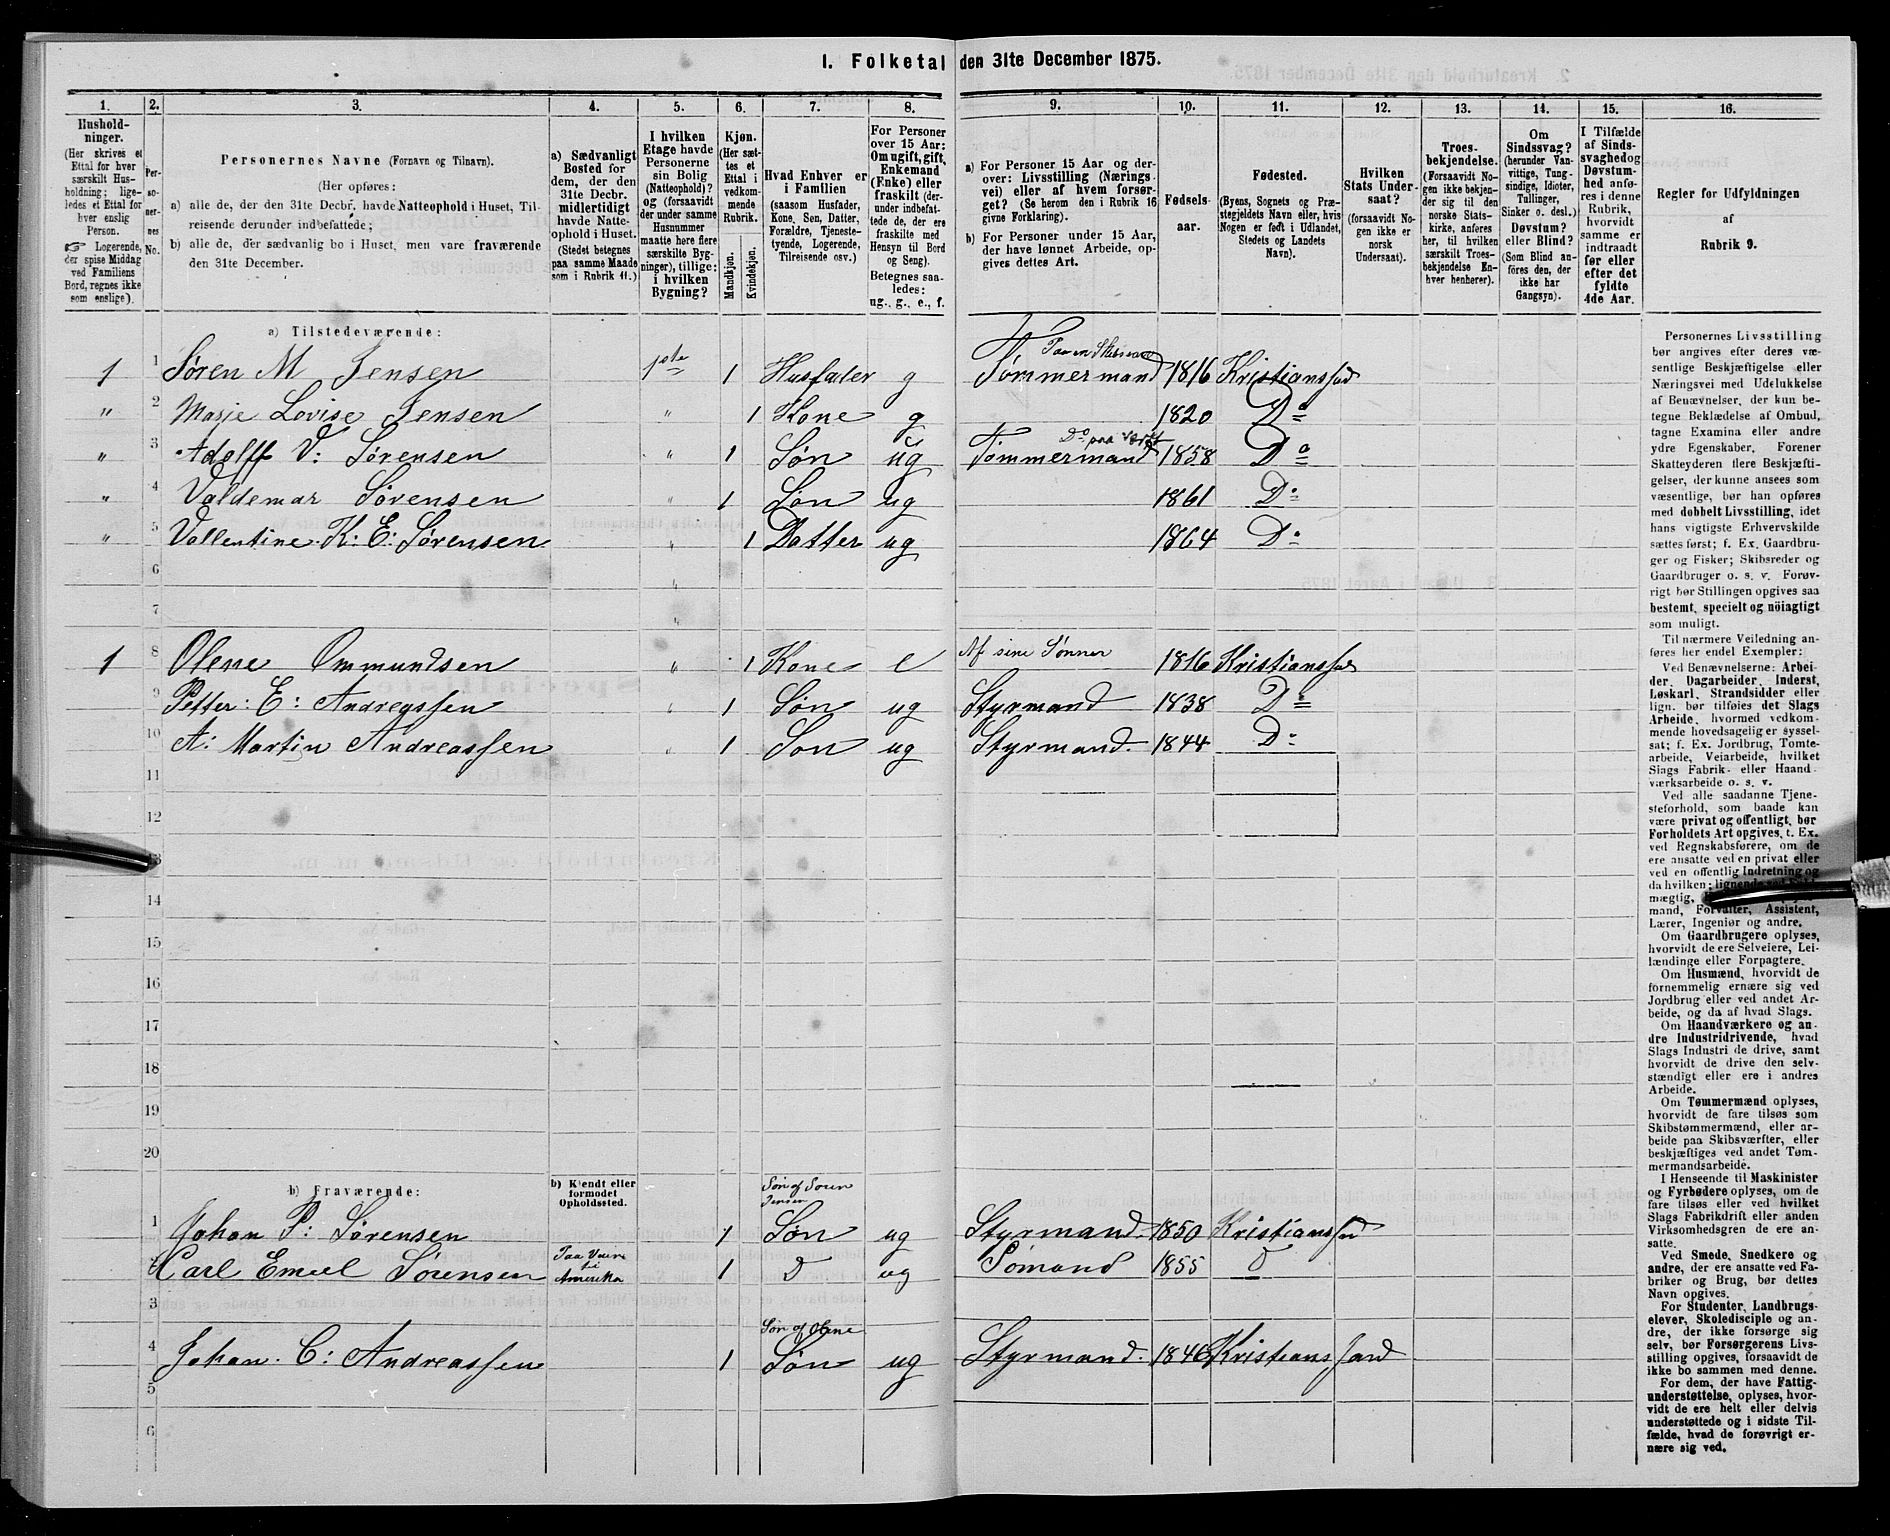 1. Folketal den 31te December 1875.
1. 2. 3. 4. 5. 6. 7. 8. 9. 10. 11. 12. 13. 14. 15. 16.
Hushold-
ninger.
(Her skrives et
Ettal for hver
særskilt Hus-
holdning; lige-
ledes et Ettal for
hver enslig
Person.
☞ Logerende,
der spise Middag
ved Familiens
Bord, regnes ikke
som enslige).
Per-
so-
ner-
nes
No.
Personernes Navne (Fornavn og Tilnavn).
(Her opføres:
a) alle de, der den 31te Decbr. havde Natteophold i Huset, Til-
reisende derunder indbefattede;
b) alle de, der sædvanlig bo i Huset, men vare fraværende
den 31te December.
a) Sædvanligt
Bosted for
dem, der den
31te Decbr.
midlertidigt
havde Natte-
ophold i Huset.
(Stedet betegnes
paa samme Maade
som i Rubrik 11.)
I hvilken
Etage havde
Personerne
sin Bolig
(Natteophold)?
og (forsaavidt
der under samme
Husnummer
maatte høre flere
særskilte Byg-
ninger), tillige:
i hvilken
Bygning?
Kjøn.
(Her sæt-
tes et
Ettal i
vedkom-
mende
Rubrik.
Mandkjøn.
Kvindekjøn.
Hvad Enhver er
i Familien
(saasom Husfader,
Kone, Søn, Datter,
Forældre, Tjeneste-
tyende, Logerende,
Tilreisende osv.)
For Personer
over 15 Aar:
Om ugift, gift,
Enkemand
(Enke) eller
fraskilt (der-
under indbefat-
tede de, der ere
fraskilte med
Hensyn til Bord
og Seng).
Betegnes saa-
ledes:
ug., g., e., f.
a) For Personer 15 Aar og der-
over: Livsstilling (Nærings-
vei) eller af hvem forsør-
get? (Se herom den i Rubrik 16
givne Forklaring).
b) For Personer under 15 Aar,
der have lønnet Arbeide, op-
gives dettes Art.
Fødsels-
aar.
Fødested.
(Byens, Sognets og Præ-
stegjeldets Navn eller, hvis
Nogen er født i Udlandet,
Stedets og Landets
Navn).
Hvilken
Stats Under-
saat?
(forsaavidt No-
gen ikke er
norsk
Undersaat).
Troes-
bekjendelse.
(Forsaavidt No-
gen ikke bekjen-
der sig til den
norske Stats-
kirke, anføres
her, til hvilken
særskilt Troes-
bekjendelse En-
hver henhører).
Om
Sindssvag?
(herunder Van-
vittige, Tung-
sindige, Idioter,
Tullinger,
Sinker o. desl.)
Døvstum?
eller Blind?
(Som Blind an-
føres den, der
ikke har
Gangsyn).
I Tilfælde
af Sinds-
svaghed og
Døvstum-
hed anfø-
res i denne
Rubrik,
hvorvidt
samme er
indtraadt
før eller
efter det
fyldte
4de Aar.
Regler for Udfyldningen
af
Rubrik 9.
a) Tilstedeværende:
1 1 Søren M Jensen 1ste 1 Husfader g Tømmermand 1816 Kristianssad
" 2 Marje Lovise Jensen " 1 Kone g 1820 Do
" 3 Adolff V: Sørensen " 1 Søn ug Tømmermand Do paa Værft 1858 Do
" 4 Valdemar Sørensen " 1 Søn ug 1861 Do
" 5 Vallentine K: E: Sørensen " 1 Datter ug 1864 Do
6 "
7 "
1 8 Olene Ommundsen " 1 Kone e Af sine Sønner 1816 Kristianssad
9 Petter: E: Andreassen " 1 Søn ug Styrmand 1838 Do
10 A: Martin Andreassen " 1 Søn ug Styrmand. 1844 Do
11
12
13
14
15
16
17
18
19
20
b) Fraværende:
b) Kjendt eller
formodet
Opholdssted.
Søn af Søren
Jensen
1 Johan P: Sørensen 1 Søn ug Styrmand. 1850 Kristianssad
2 Carl Emiel Sørensen Paa Veien til Amerika 1 D ug Sømand 1855 D
3
Søn af Olene
4 Johan. C: Andreassen 1 Søn ug Styrmand. 1846 Kristianssand
5
6
Personernes Livsstilling
bør angives efter deres væ-
sentlige Beskjæftigelse eller
Næringsvei med Udelukkelse
af Benævnelser, der kun be-
tegne Beklædelse af Ombud,
tagne Examina eller andre
ydre Egenskaber. Forener
Skatteyderen flere Beskjæfti-
gelser, der kunne ansees som
væsentlige, bør han opføres
med dobbelt Livsstilling, idet
hans vigtigste Erhvervskilde
sættes først; f. Ex. Gaardbru-
ger og Fisker; Skibsreder og
Gaardbruger o. s. v. Forøv-
rigt bør Stillingen opgives saa
bestemt, specielt og nöiagtigt
som muligt.
Til nærmere Veiledning an-
føres her endel Exempler:
Ved Benævnelserne: Arbei-
der, Dagarbeider, Inderst,
Løskarl, Strandsidder eller
lign. bør tilføies det Slags
Arbeide, hvormed vedkom-
mende hovedsagelig er syssel-
sat; f. Ex. Jordbrug, Tomte-
arbeide, Veiarbeide, hvilket
Slags Fabrik- eller Haand-
værksarbeide o. s. v.
Ved alle saadanne Tjene-
steforhold, som baade kan
være privat og offentligt, bør
Forholdets Art opgives, t. Ex.
ved Regnskabsførere, om de
ere ansatte ved en privat eller
ved en offentlig Indretning og
da hvilken; lignende ved
mægtig,
mand, Forvalter, Assistent,
Lærer, Ingeniør og andre.
Om Gaardbrugere oplyses,
hvorvidt de ere Selveiere, Lei-
lændinge eller Forpagtere.
Om Husmænd, hvorvidt de
fornemmelig ernære sig ved
Jordbrug eller ved andet Ar-
beide, og da af hvad Slags.
Om Haandværkere og an-
dre Industridrivende, hvad
Slags Industri de drive, samt
hvorvidt de drive den selv-
stændigt eller ere i andres
Arbeide.
Om Tømmermænd oplyses,
hvorvidt de fare tilsøs som
Skibstømmermænd, eller ar-
beide paa Skibsværfter, eller
beskjæftiges ved andet Tøm-
mermandsarbeide.
I Henseende til Maskinister
og Fyrbødere oplyses, om de
fare tilsøs eller ved hvilket
Slags Fabrikdrift eller anden
Virksomhedsgren de ere an-
satte.
Ved Smede, Snedkere og
andre, der ere ansatte ved Fa-
briker og Brug, bør dettes
Navn opgives.
For Studenter, Landbrugs-
elever, Skoledisciple og an-
dre, der ikke forsørge sig
selv, bør Forsørgerens Livs-
stilling opgives, forsaavidt de
ikke bo sammen med denne.
For dem, der have Fattig-
understøttelse, oplyses, hvor-
vidt de ere helt eller delvis
understøttede og i sidste Til-
fælde, hvad de forøvrigt er-
nære sig ved.